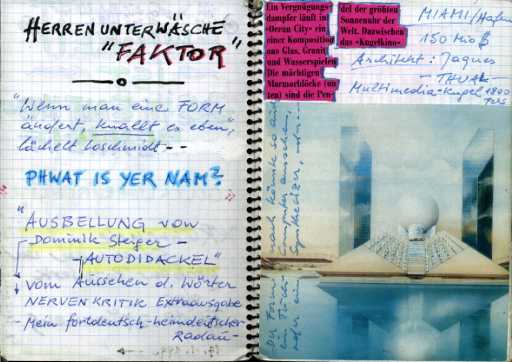 HERRENUNTERWÄSCHE
"FAKTOR"
"Wenn man eine FORM
ändert, knallt es eben",
lächelt Loschmidt - -
PHWAT IS YER NAM?
"AUSBELLUNG von
Dominik Steiger -
- AUTODIDACKEL"
vom Aussehen d. Wörter
NERVENKRITIK Extraausgabe
- Mein fortdeutsch-heimdeutscher
Radau -
Ein Vergnügungs-
dampfer läuft in
»Ocean City« ein
einer Komposition
aus Glas, Granit
und Wasserspielen
Die mächtigen
Marmorblöcke (un
ten) sind die Pen-
del der größten
Sonnenuhr der
Welt. Dazwischen
das »Kugelkino«
MIAMI/Hafen
150 Mio $
Architekt: Jaques
- THUAL -
Multimedia-Kugel 1800
Die Form
nach könnte so eine
ein Tisch
Computer ausschauen,
oder ein
Synthesizer, oder -